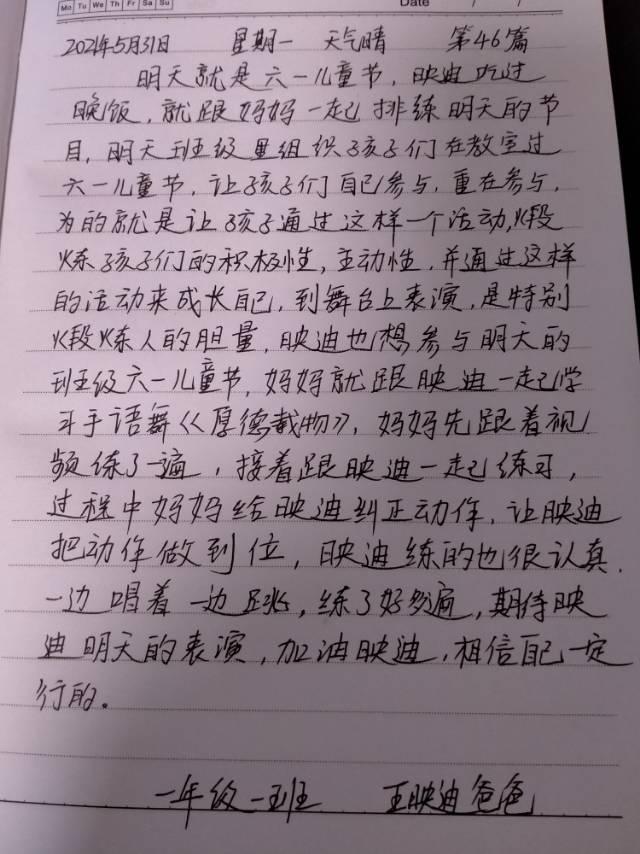 Mo Tu We Th Fr Sa Su
Date / /
2021年5月31日 星期一 天气晴 第46篇
明天就是六一儿童节，映迪吃过
晚饭，就跟妈妈一起排练明天的节
目，明天班级里组织孩子们在教室过
六一儿童节，让孩子们自己参与，重在参与，
为的就是让孩子通过这样一个活动，煅
炼孩子们的积极性，主动性，并通过这样
的活动来成长自己，到舞台上表演，是特别
煅炼人的胆量，映迪也想参与明天的
班级六一儿童节，妈妈就跟映迪一起学
习手语舞《厚德载物》，妈妈先跟着视
频练了一遍，接着跟映迪一起练习，
过程中妈妈给映迪纠正动作，让映迪
把动作做到位，映迪练的也很认真，
一边唱着一边跳，练了好多遍，期待映
迪明天的表演，加油映迪，相信自己一定
行的。
一年级一班 王映迪爸爸